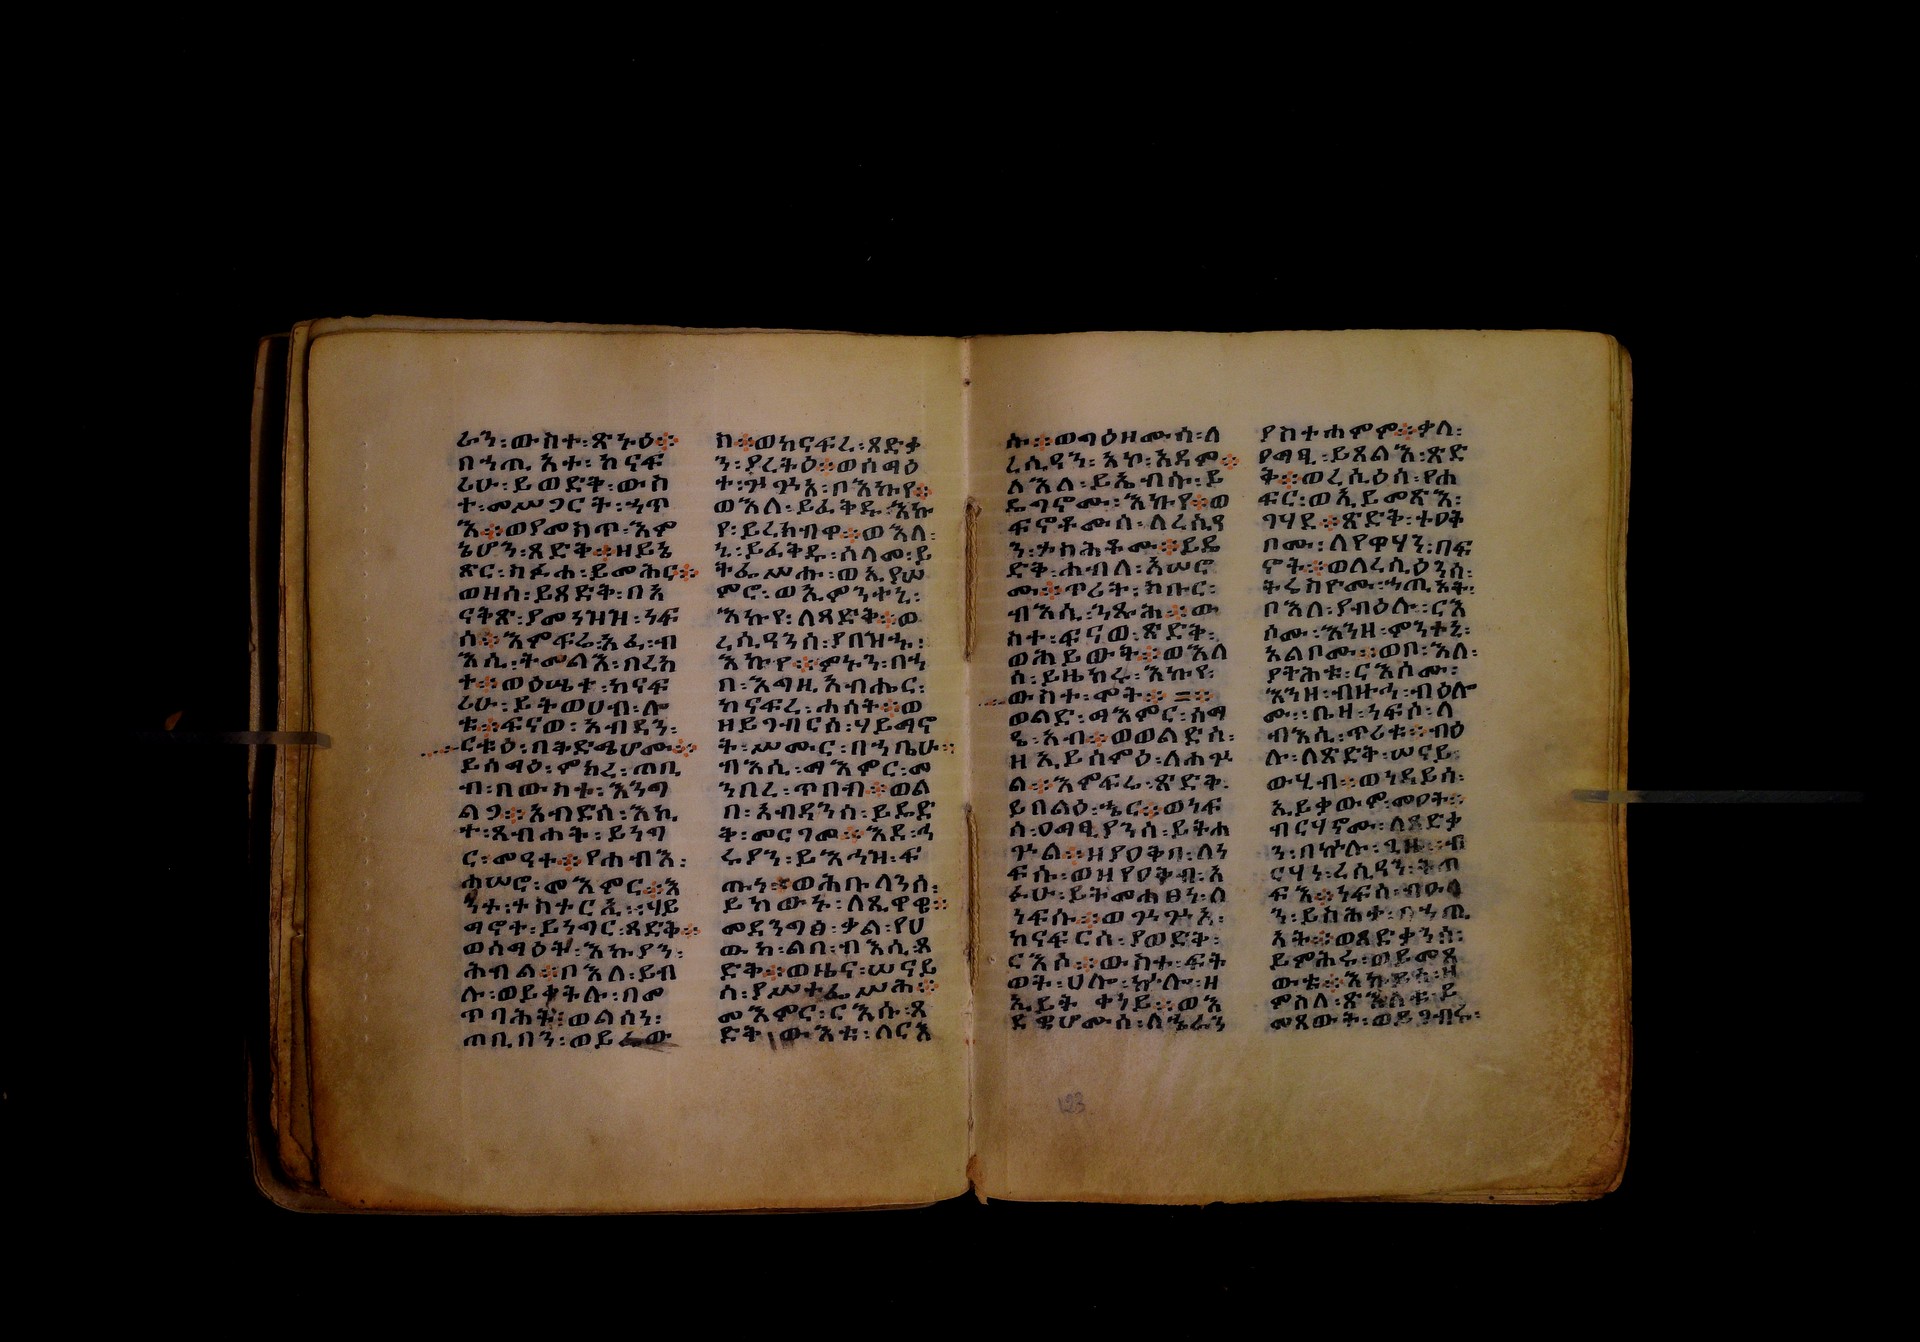 ራን፡ውስተ፡ጽኑዕ።
በኀጢአተ፡ከናፍ
ሪሁ፡ይወድቅ፡ውስ
ተ፡መሥገርት፡ኀጥ
እ።ወየመክጥ፡እም
ኔሆን፡ጻድቅ።ዘይኔ
ጽር፡ክፉሐ፡ይመሕር።
ወዘሰ፡ይጻድቅ፡በአ
ናቅጽ፡ያመነዝዝ፡ነፍ
ሰ።እምፍሬ፡አፈ፡ብ
እሲ፡ትመልእ፡በረከ
ተ።ወዕሤተ፡ከናፍ
ሪሁ፡ይትወሀብ፡ሎ
ቱ።ፍናወ፡አብዳን፡
ርቱዕ፡በቅድሜሆሙ።
ይሰማዕ፡ምክረ፡ጠቢ
ብ፡በውክቱ፡እንግ
ልጋ።አብድሰ፡እኪ
ተ፡ጸብሐት፡ይነግ
ር፡መዓተ።የሐብእ፡
ሐሠሮ፡መእምር።እ
ንተ፡ተከተርኢ።ሃይ
ማኖተ፡ይነግር፡ጻድቅ።
ወሰማዕት፡እኩያን፡
ሕብል።ቦእለ፡ይብ
ሉ፡ወይቀትሉ፡በመ
ጥባሕት፡ወልሰነ፡
ጠቢበን፡ወይፌው
ከ።ወከናፍረ፡ጻድቃ
ን፡ያረትዕ።ወሰማዕ
ተ፡ጉጉአ፡በእኩየ።
ወእለ፡ይፈቅዱ፡እኩ
የ፡ይረክብዋ።ወእለ፡
ኒ፡ይፈቅዱ፡ሰላመ፡ይ
ትፌሥሑ፡ወኢያሠ
ምሮ፡ወኢምንተኒ፡
እኩየ፡ለጻድቅ።ወ
ረሲዓንሰ፡ያበዝኁ፡
እኩየ።ምኑን፡በኀ
በ፡እግዚአብሔር፡
ከናፍረ፡ሐሰት።ወ
ዘይገብርሰ፡ሃይማኖ
ት፡ሥሙር፡በኀቤሁ።
ብእሲ፡ማእምር፡መ
ንበረ፡ጥበብ።ወል
በ፡አብዳንሰ፡ይዴድ
ቅ፡መርገመ።እደ፡ኅ
ሩያን፡ይእኅዝ፡ፍ
ጡነ።ወሕቡላንሰ፡
ይከውኑ፡ለጺዋዌ።
መደንግፅ፡ቃል፡የሀ
ውከ፡ልበ፡ብእሲ፡ጻ
ድቅ።ወዜና፡ሠናይ
ሰ፡ያሥተፌሥሕ።
መእምር፡ርእሱ፡ጻ
ድቅ፡ውእቱ፡ለርእ
ሱ።ወግዕዘሙሰ፡ለ
ረሲዳን፡አኮ፡አዳም።
ለእለ፡ይኤብሱ፡ይ
ዴግኖሙ፡እኩየ።ወ
ፍኖቶሙሰ፡ለረሲዓ
ን፡ታስሕቶሙ።ይዴ
ድቅ፡ሐብለ፡አሠሮ
ሙ።ጥሪት፡ክቡር፡
ብእሲ፡ንጹሕ።ው
ስተ፡ፍናወ፡ጽድቅ፡
ወሕይወት።ወእለ
ሰ፡ይዜከሩ፡እኩየ፡
ውስተ፡ሞት።=።
ወልድ፡ማእምር፡ሰማ
ዔ፡አብ።ወወልድሰ፡
ዘኢይሰምዕ፡ለሐጕ
ል።እምፍሬ፡ጽድቅ፡
ይበልዕ፡ኄር።ወነፍ
ሰ፡ዐማፂያንሰ፡ይትሐ
ጕል።ዘያዐቅብ፡ለነ
ፍሱ፡ወዘየዐቅብ፡አ
ፉሁ፡ይትመሐፀን፡ለ
ነፍሱ።ወጕጉእ፡
ከናፍርሰ፡ያወድቅ፡
ርእሶ።ውስተ፡ፍት
ወት፡ሀሎ፡ኵሎ፡ዘ
ኢይት ቀነይ።ወእ
ደዊሆሙሰ፡ለኄራን
ያስተሐምም።ቃለ፡
ዐማፂ፡ይጸልእ፡ጽድ
ቅ።ወረሲዕሰ፡የሐ
ፍር፡ወኢይመጽእ፡
ገሃደ።ጽድቅ፡ተዐቅ
ቦሙ፡ለየዋሃን፡በፍ
ኖት።ወለረሲዕንሰ፡
ትሬስዮሙ፡ኀጢአት፡
ቦእለ፡ያብዕሉ፡ርእ
ሶሙ፡እንዘ፡ምንተኒ፡
አልቦሙ።ወቦ፡እለ፡
ያትሕቱ፡ርእሶሙ፡
እንዘ፡ብዙኅ፡ብዕሎ
ሙ።ቤዛ፡ነፍሰ፡ለ
ብእሲ፡ጥሪቱ።ብዕ
ሉ፡ለጽድቅ፡ሠናይ፡
ውሂብ።ወነዳይሰ፡
ኢይቀውም፡መዐት።
ብርሃኖሙ፡ለጻድቃ
ን፡በኵሉ፡ጊዜ።ብ
ርሃነ፡ረሲዳን፡ትጠ
ፍእ።ነፍሰ፡ብዑላ
ን፡ይስሕቃ፡በኀጢ
አት።ወጻድቃንሰ፡
ይምሕሩ፡ወይመጸ
ውቱ።እኩይሰ፡ዘ
ምስለ፡ጽእለቱ፡ይ
መጸውት፡ወይገብሩ፡
123